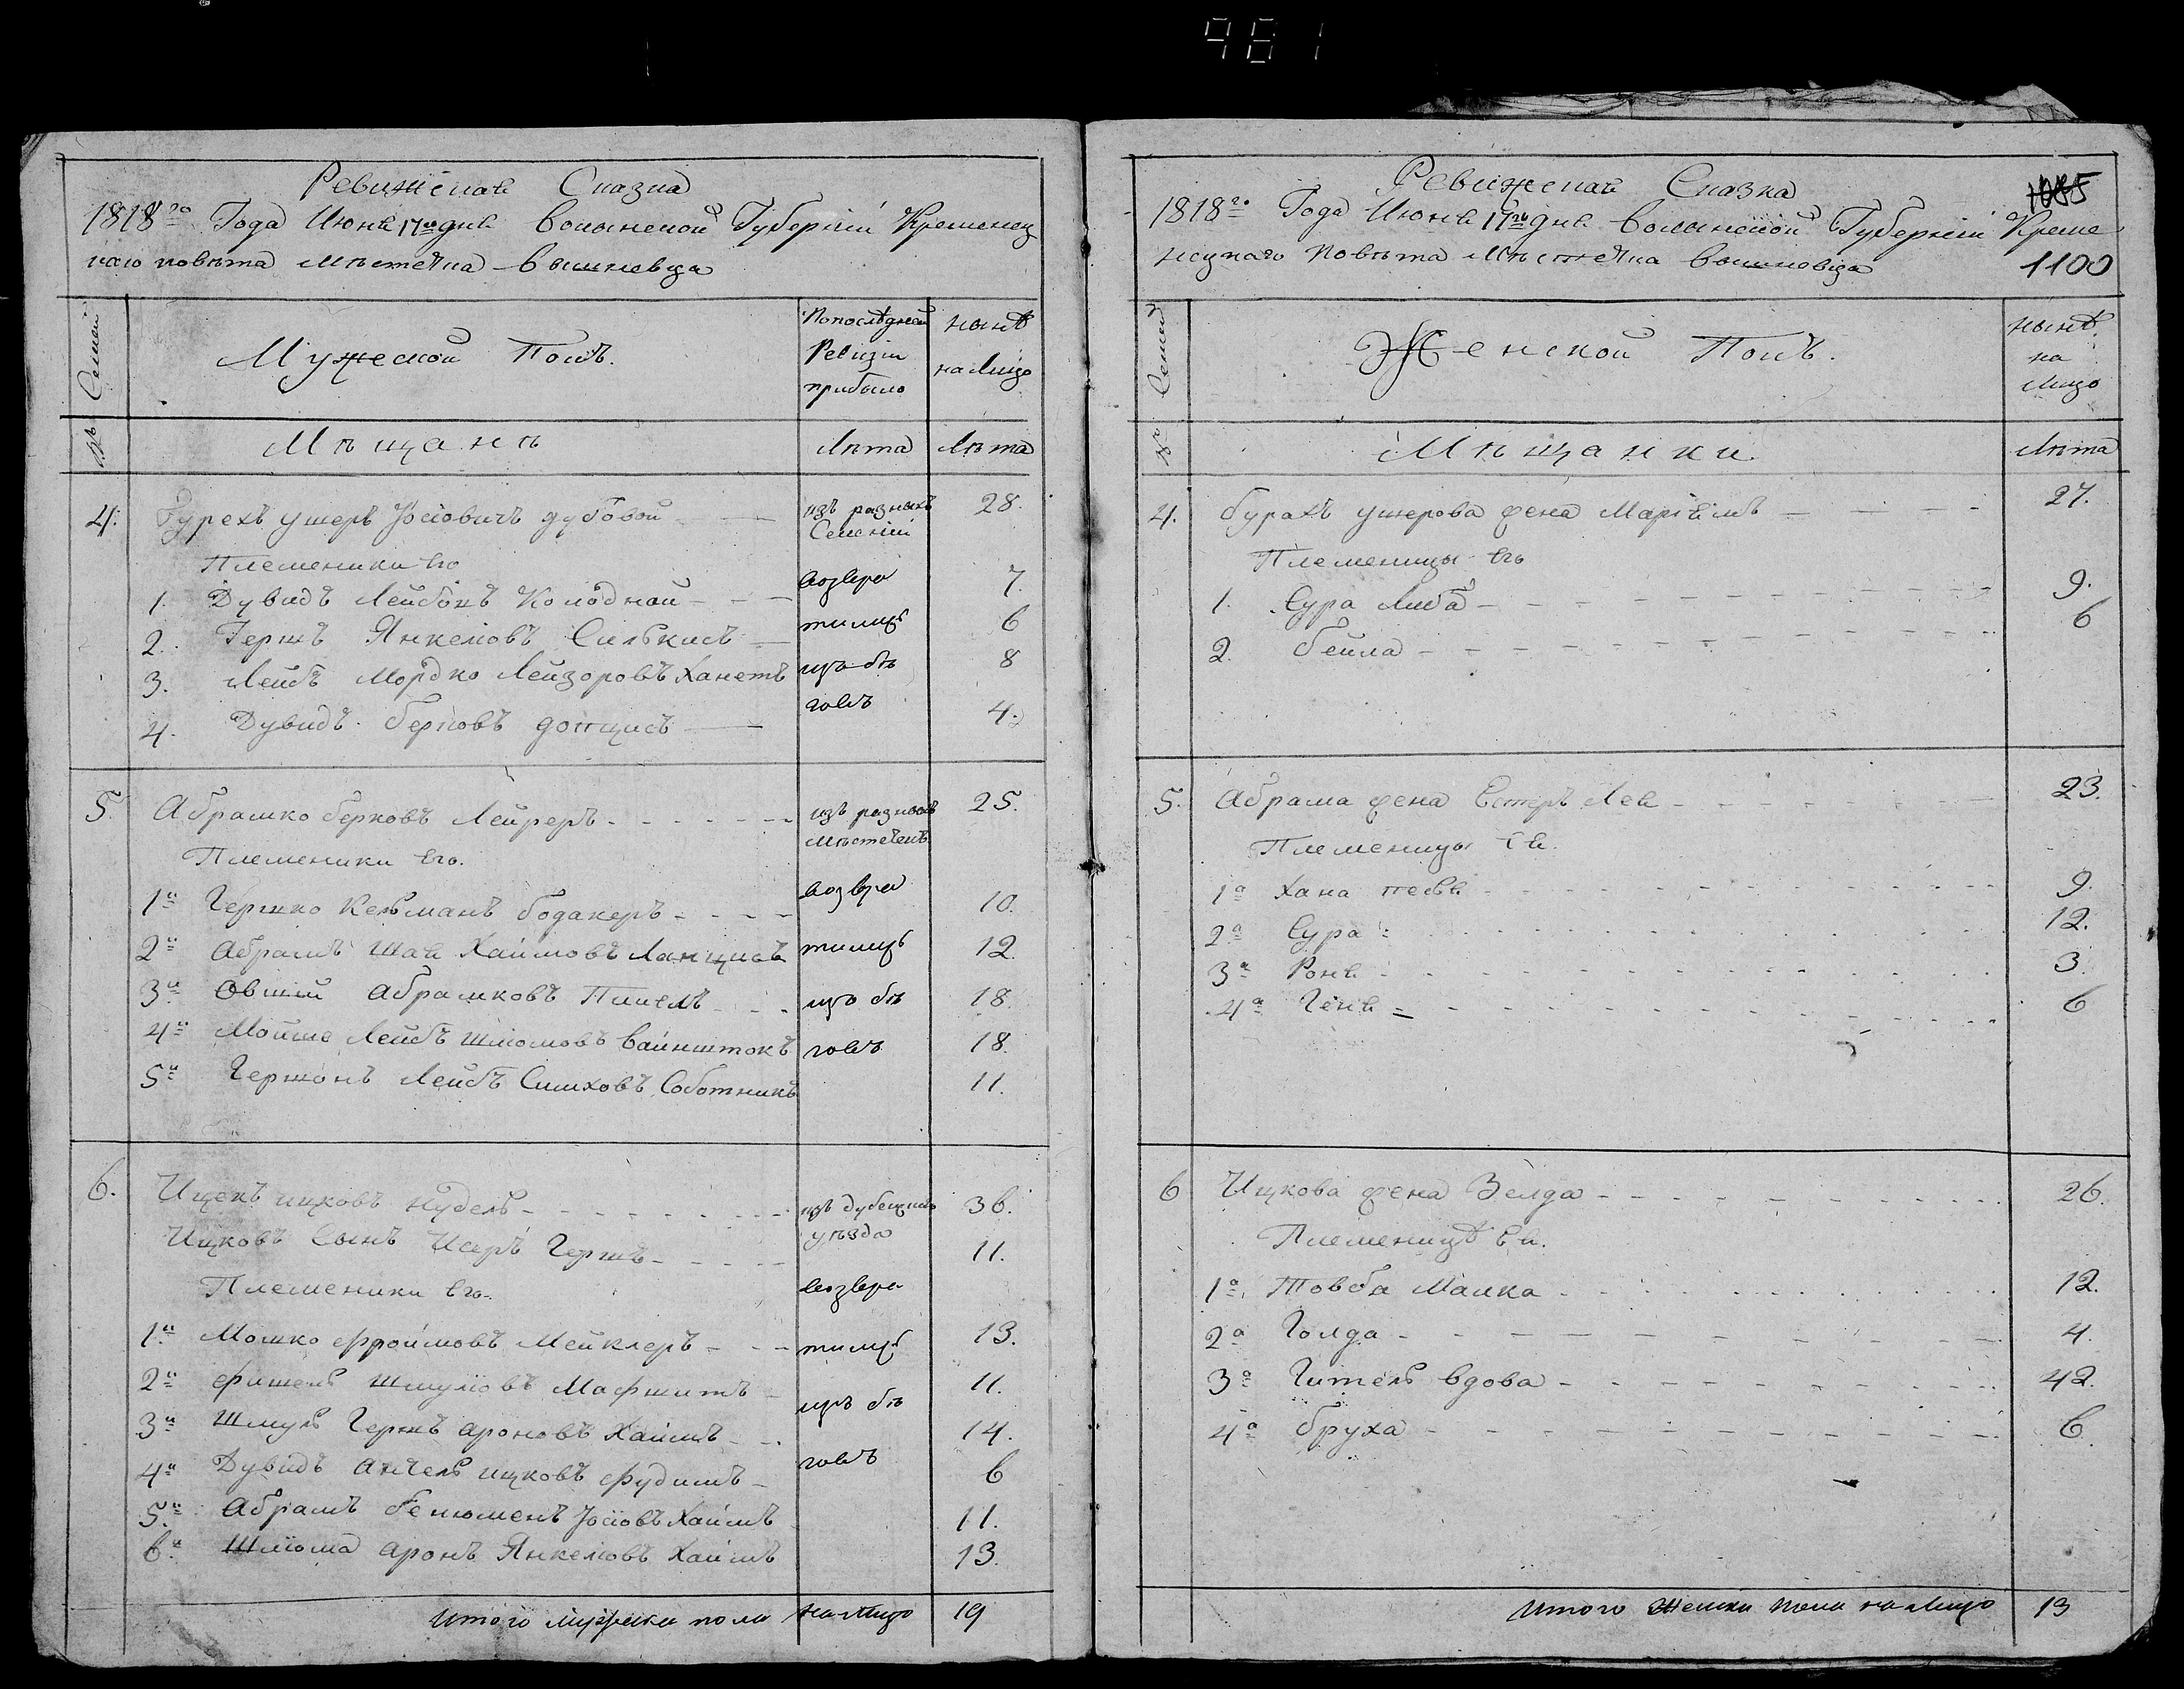 981
Ревижская Сказка
1818го Года Июня 17го дня Волынской Губерніи Кременец
каго повѣта мѣстечка Вышневца
№ Семей
Мужеской Полъ.
Попослѣдней Ревизіи прибыло
нынѣ на лицо
Мѣщанѣ
Лѣта
Лѣта
4. Ушеръ Іосіовичъ Дубовой
изъ разныхъ Семеній
28.
Племеники Его
1. Дувидъ Лейбовъ Колодной
возвра
7.
2. Гершъ Янкеліовъ Силькисъ
тилис
6
3. Лейбъ Мордко Лейзоровъ Ханетъ
изъ бѣ
8
4. Дувидъ Берковъ
говъ
4.
5. Абрамко Берковъ Лейреръ
изъ разныхъ мѣстечекъ
25.
Племеники Его.
возвра
1й Гершко Кельманъ Бодакеръ
10.
2й Абрамъ Шая Хаимовъ Ланцисъ
тилис
12
3й Овшій Абрамковъ Пичелъ
изъ бѣ
18.
4й Мойше Лейбъ Шліомовъ Вайнштокъ
говъ
18.
5й Гершонъ Лейбъ Симховъ Соботникъ
11.
6. Ицекъ Ицковъ Нудель
изъ Дубенскаго уѣзда
36.
Ицковъ Сынъ Исеръ Гершъ
11.
Племеники Его.
возвра
1й Мошко Фроимовъ Мейклеръ
тилис
13.
2й Фишель Шмуліовъ Мафшитъ
11.
изъ бѣ
3й Шмуль Гершъ Ароновъ Хаимъ
14.
4й Дувидъ Анчель Ицковъ Фудимъ
говъ
6
5й Абрамъ Бенюменъ Іосіовъ Хаимъ
11.
6й Шліома Аронъ Янкеліовъ Хаимъ
13.
Итого мужска пола на лицо
19
Ревижская Сказка
1085
1818го Года Июня 17го дня Волынской Губерніи Креме
нецкаго Повѣта Мѣстечка Вышневца
1100
№ Семей
Женской Полъ.
нынѣ на лицо
Мѣщанки
Лѣта
4. Ушерова жена Маріямъ
27.
Племеницы Его
1. Сура Либа
9.
2. Бейла
6
5. Абрама жена Естръ Лея
23.
Племеницы Ея.
1а Хана Песя
9.
2а Сура
12.
3а Роня
3.
4а Геня
6
6 Ицкова жена Зелда
26.
Племеницѣ Ея.
1а Товба Малка
12.
2а Голда
4.
3а Гитель вдова
42.
4а Бруха
6.
Итого Женска пола на лицо
13